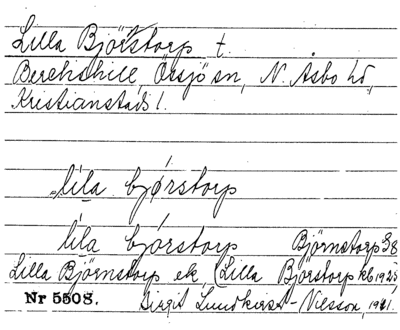 Lilla Björstorp t.
Örsjö sn, N. Åsbo hd,
Kristianstads l.
lila bjórstorp
líla bjórstorp Björnstorp 38
Lilla Björnstorp ek, (Lilla Björstorp kb 1925
Nr 5508. Birgit Lundkvist-Nilsson, 1941.